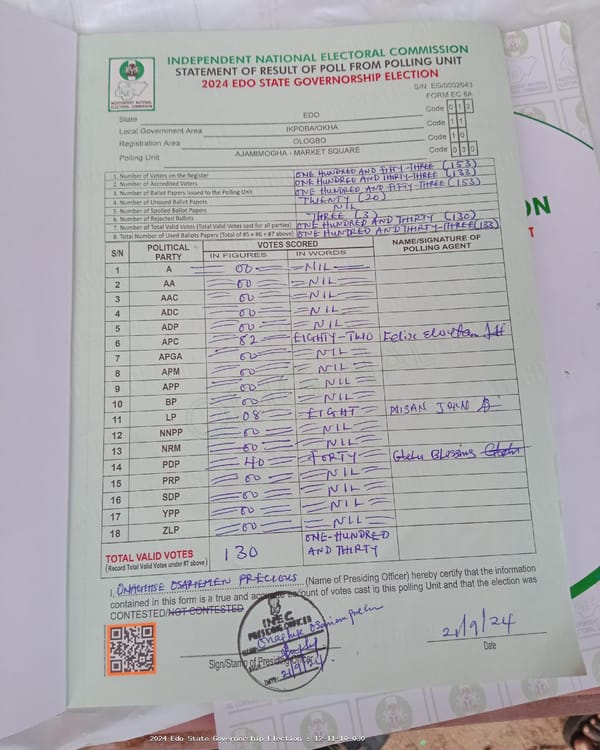 INDEPENDENT NATIONAL ELECTORAL COMMISSION
STATEMENT OF RESULT OF POLL FROM POLLING UNIT
2024 EDO STATE GOVERNORSHIP ELECTION
S/N: EG/0002643
FORM EC 8A
State EDO Code 0 1 2
Local Government Area IKPOBA/OKHA Code 1 1
Registration Area OLOGBO Code 1 0
Polling Unit AJAMIMOGHA - MARKET SQUARE Code 0 3 0
1. Number of Voters on the Register ONE HUNDRED AND FIFTY-THREE (153)
2. Number of Accredited Voters ONE HUNDRED AND THIRTY-THREE (133)
3. Number of Ballot Papers Issued to the Polling Unit ONE HUNDRED AND FIFTY-THREE (153)
4. Number of Unused Ballot Papers TWENTY (20)
5. Number of Spoiled Ballot Papers NIL
6. Number of Rejected Ballots THREE (3)
7. Number of Total Valid Votes (Total Valid Votes cast for all parties) ONE HUNDRED AND THIRTY (130)
8. Total Number of Used Ballots Papers (Total of #5 + #6 + #7 above) ONE HUNDRED AND THIRTY-THREE (133)
S/N POLITICAL PARTY VOTES SCORED NAME/SIGNATURE OF POLLING AGENT
IN FIGURES IN WORDS
1 A 00 NIL
2 AA 00 NIL
3 AAC 00 NIL
4 ADC 00 NIL
5 ADP 00 NIL
6 APC 82 EIGHTY-TWO Felix
7 APGA 00 NIL
8 APM 00 NIL
9 APP 00 NIL
10 BP 00 NIL
11 LP 08 EIGHT MISAN JOHN
12 NNPP 00 NIL
13 NRM 00 NIL
14 PDP 40 FORTY Blessing
15 PRP 00 NIL
16 SDP 00 NIL
17 YPP 00 NIL
18 ZLP 00 NIL
TOTAL VALID VOTES 130 ONE-HUNDRED
(Record Total Valid Votes under #7 above) AND THIRTY
I, ONAGHISE OSARIEMEN PRECIOUS (Name of Presiding Officer) hereby certify that the information
contained in this form is a true and accurate account of votes cast in this polling unit and that the election was
CONTESTED/NOT CONTESTED
INEC
PRESIDING OFFICER
DATE: 21/9/24
21/9/24
Sign/Stamp of Presiding Officer
Date
2024 Edo State Governorship Election : 12-11-10-030